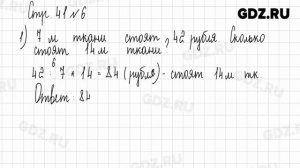 GDZ.RU
Стр. 41 № 6
1) 7 м ткани стоят 42 рубля. Сколько
стоят 14 м ткани?
6
42 : 7 * 14 = 84 (рубля) - стоят 14 м тк
Ответ: 84
GDZ.RU